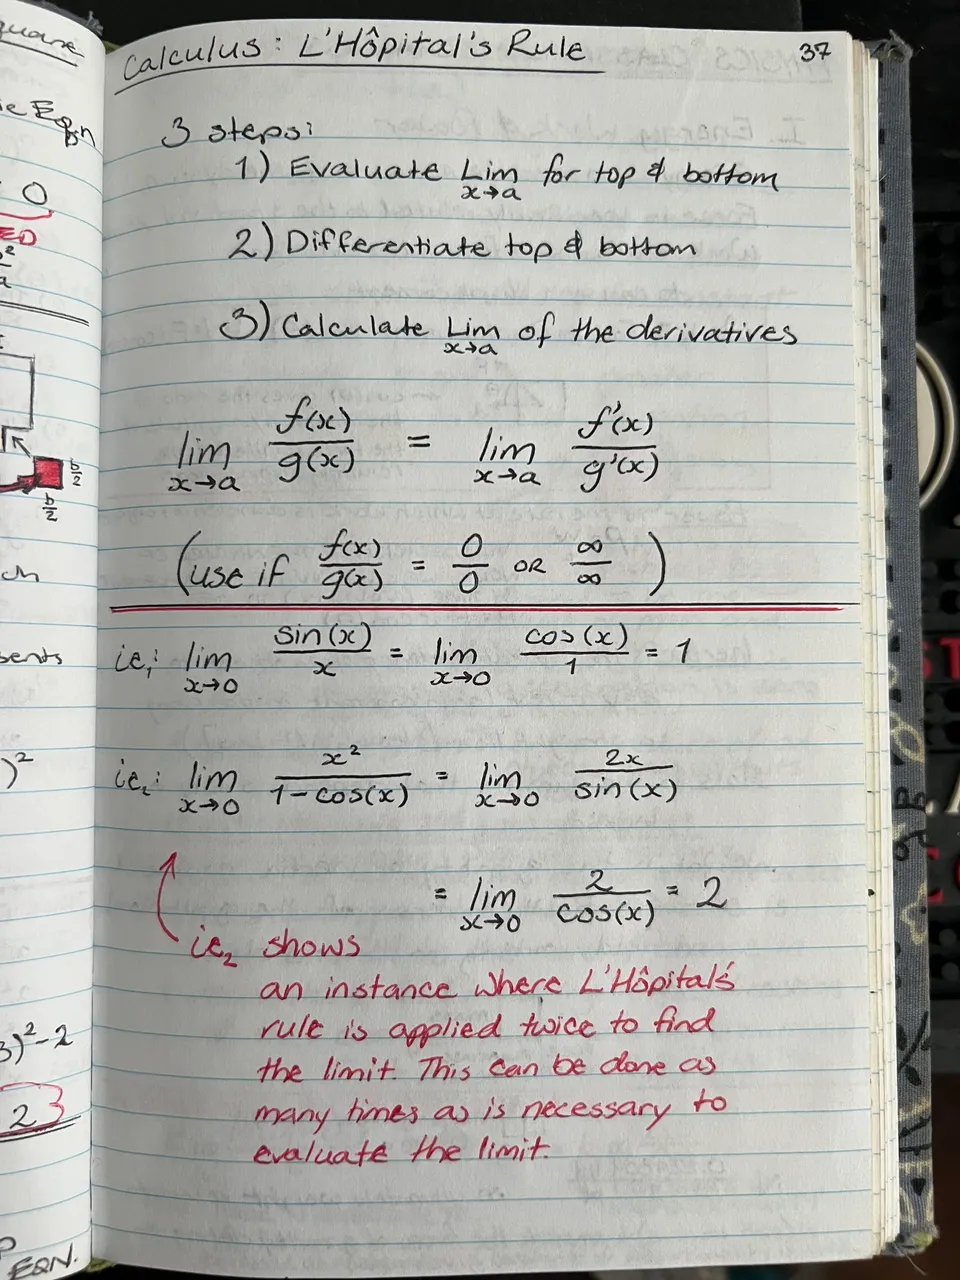 Calculus: L'Hôpital's Rule 37
3 steps:
1) Evaluate Lim x→a for top & bottom
2) Differentiate top & bottom
3) Calculate Lim x→a of the derivatives
lim x→a f(x)/g(x) = lim x→a f'(x)/g'(x)
(use if f(x)/g(x) = 0/0 OR ∞/∞)
ie₁: lim x→0 sin(x)/x = lim x→0 cos(x)/1 = 1
ie₂: lim x→0 x²/1-cos(x) = lim x→0 2x/sin(x)
= lim x→0 2/cos(x) = 2
ie₂ shows
an instance where L'Hôpital's
rule is applied twice to find
the limit. This can be done as
many times as is necessary to
evaluate the limit.
Eqn
0
b/2
b/2
)²
)²-2
2
EQN.